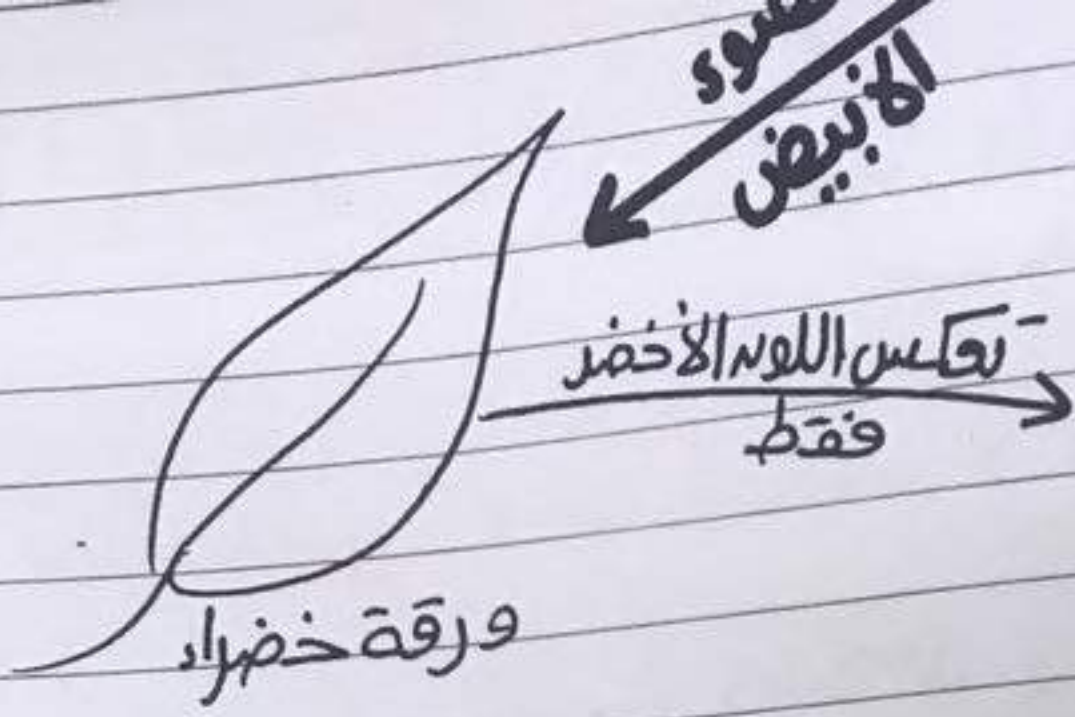 الضوء
الأبيض
تعكس اللون الأخضر
فقط
ورقة خضراء